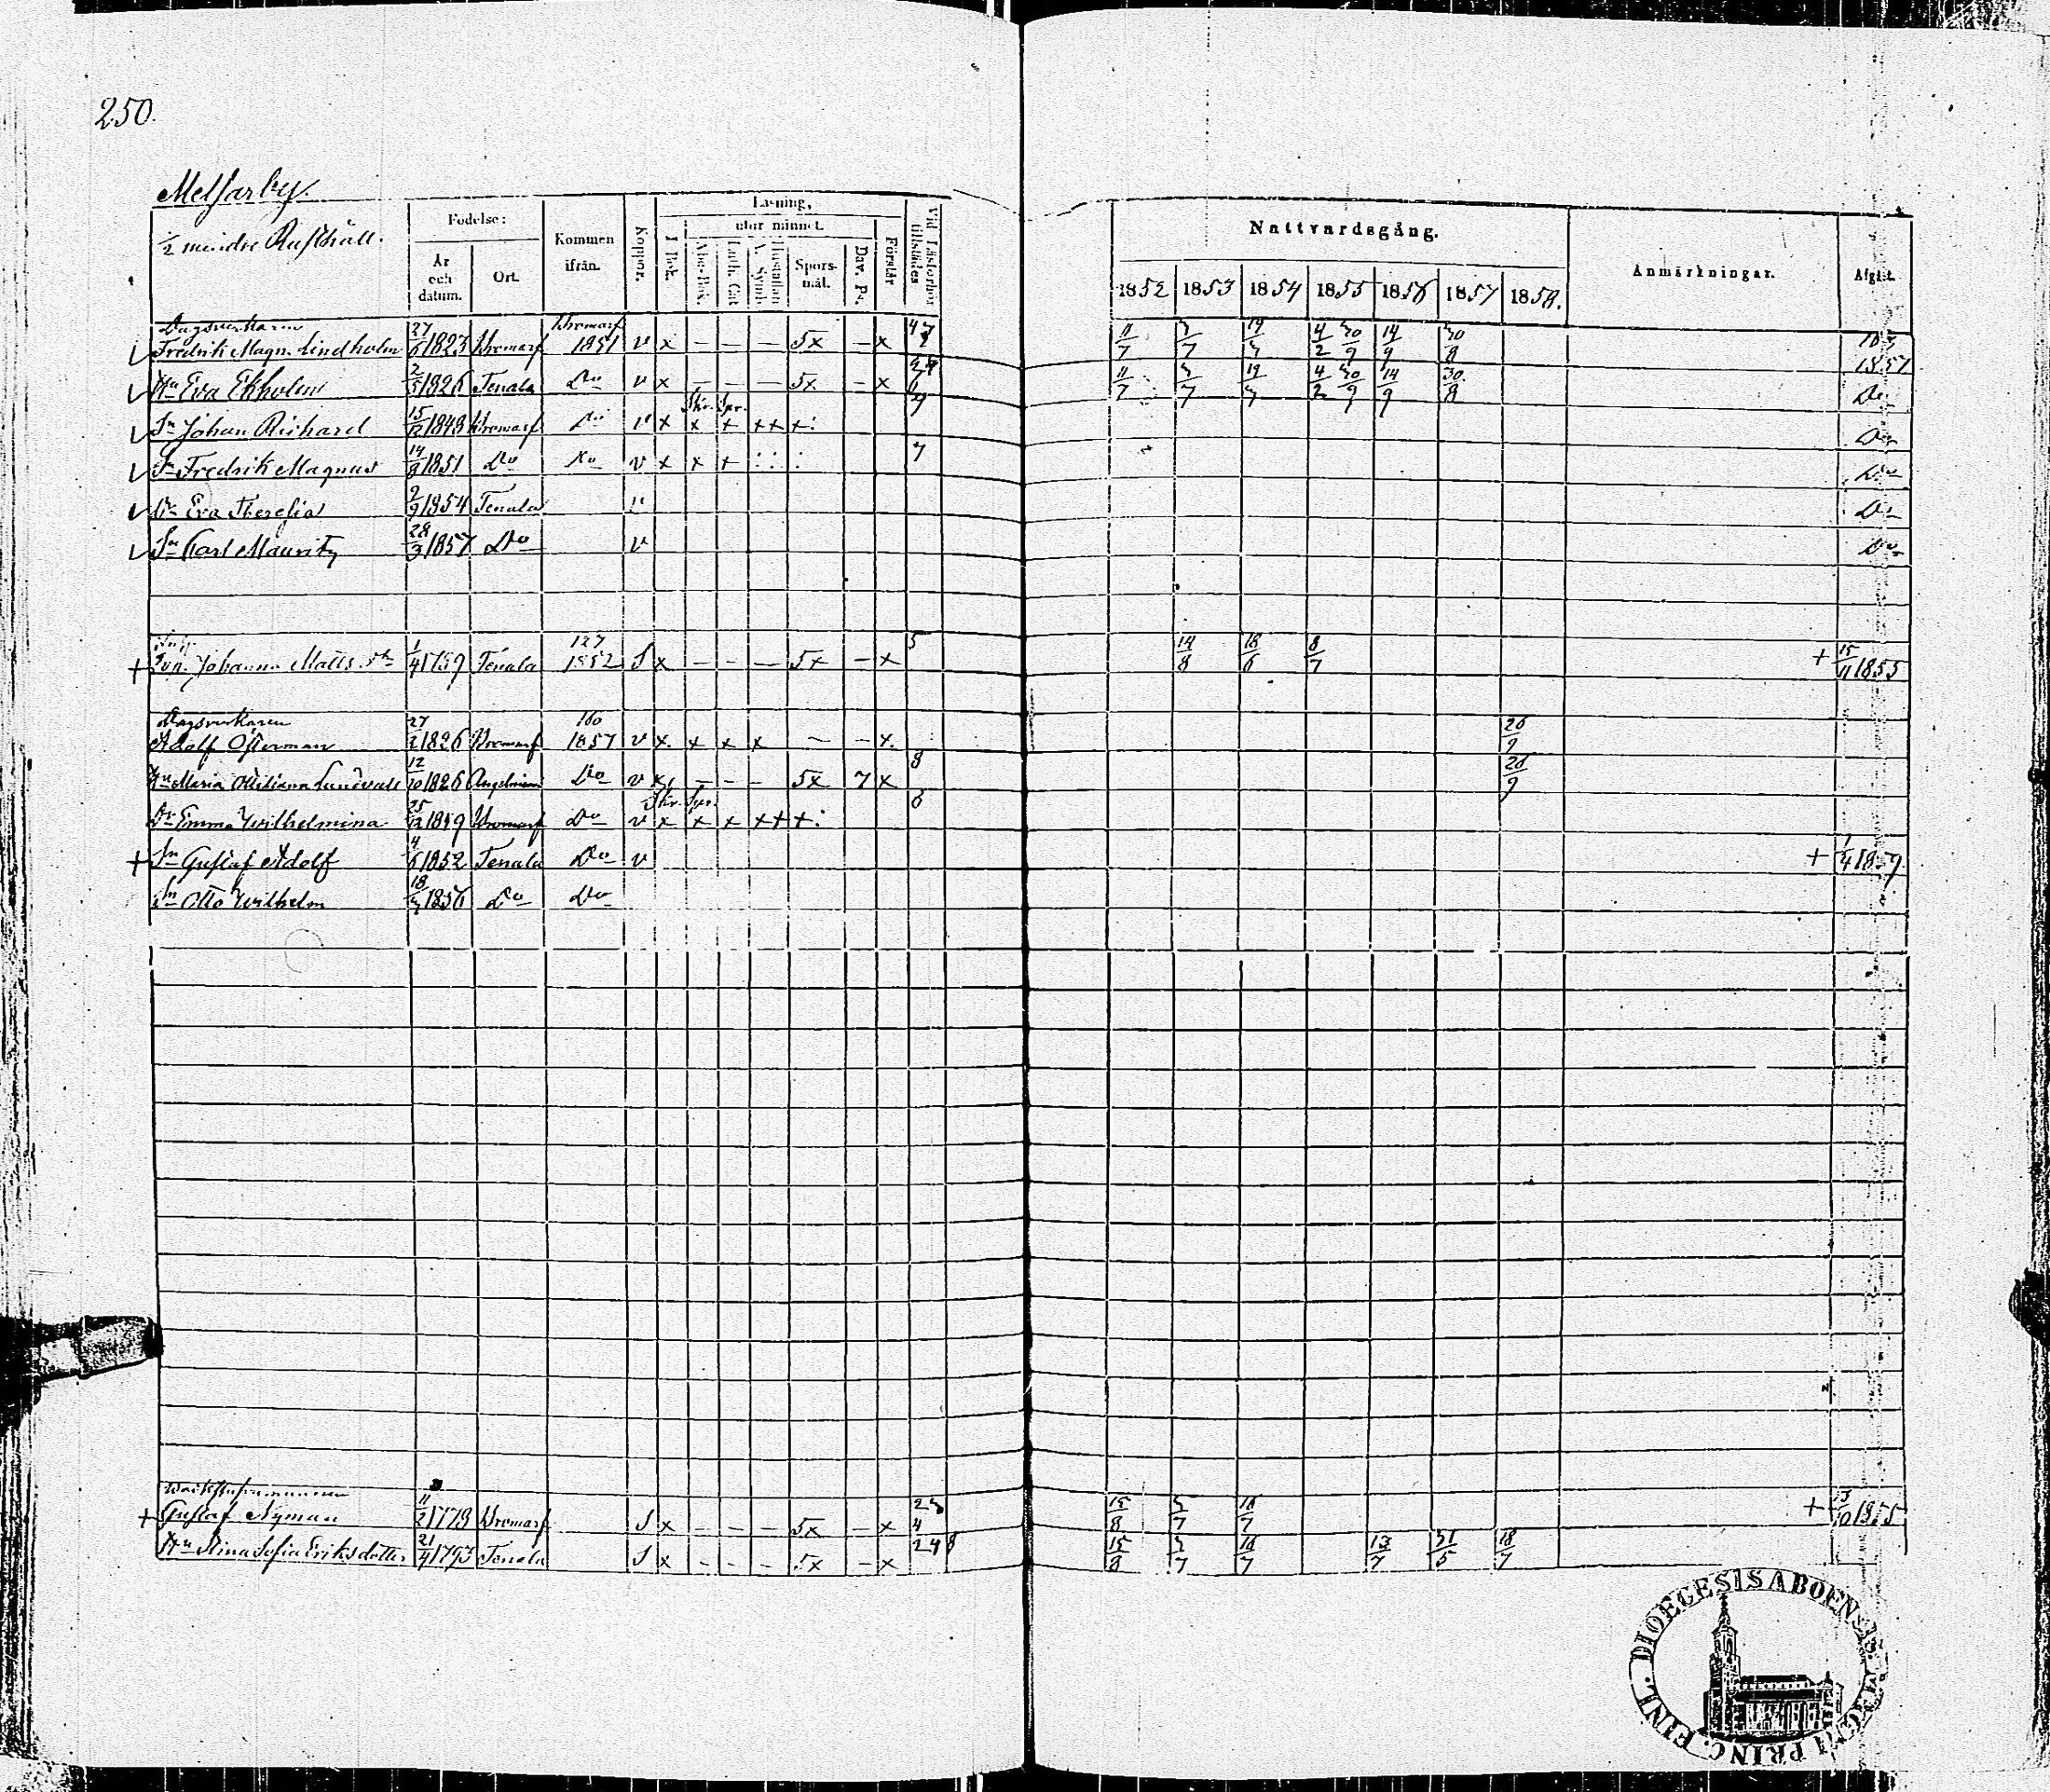 250.
Melsarby.
1/2 mindre Rusthåll.
Födelse:
År och datum.
Ort.
Kommen ifrån.
Koppor.
Läsning,
utur minnet.
I Bok.
Abc-Bok.
Luth. Cat
Hustaflan
A. Symb.
Spörsmål.
Dav. Ps.
Förstår
Vid Läseförhör tillstädes
Nattvardsgång.
1852 1853 1854 1855 1856 1857 1858.
Anmärkningar.
Afgått.
Dagsverkaren Bromarf 47
Fredrik Magn. Lindholm 27/6 1823 Bromarf 1851 v x – – – 5x – x 11/7 3/7 19/3 4/2 30/9 14/9 30/8
1857
Hu Eva Ekholm 2/5 1826 Tenala Do v x – – – 5x – x 11/7 3/7 19/3 4/2 30/9 14/9 30/8 Do
Skr. Spr. 7
Sn Johan Richard 15/12 1848 Bromarf Do v x x x x x x : Do
Sn Fredrik Magnus 14/8 1851 Do Do v x x x : : : 7 Do
Dr Eva Theresia 2/9 1854 Tenala v Do
Sn Carl Mauritz 28/3 1857 Do v Do
127 5
+ Johanna Matts dr 1/4 1789 Tenala 1852 S x – – – 5x – x 14/8 18/6 8/7 + 15/11 1855
Dagsverkaren 160
Adolf Österman 27/2 1826 Bromarf 1857 v x x x x – – x 26/9
Hu Maria Ottiliana Lundvall 12/10 1826 Angelniemi Do v x – – – 5x 7 x 8 26/9
Skr. Spr. 6
Dr Emma Wilhelmina 25/12 1849 Bromarf Do v x x x x x x :
+ Sn Gustaf Adolf 4/6 1852 Tenala Do v + 1/4 1859
Sn Otto Wilhelm 18/3 1856 Do Do
+ Gustaf Nyman 11/2 1773 Bromarf S x – – – 5x – x 23 4 15/8 3/7 16/7 + 1855
Hu Stina Sofia Eriksdotter 21/4 1793 Tenala S x – – – 5x – x 24 8 15/8 3/7 16/7 13/7 31/5 18/7
DIOECESIS ABOENSIS
PRINC. FINL.